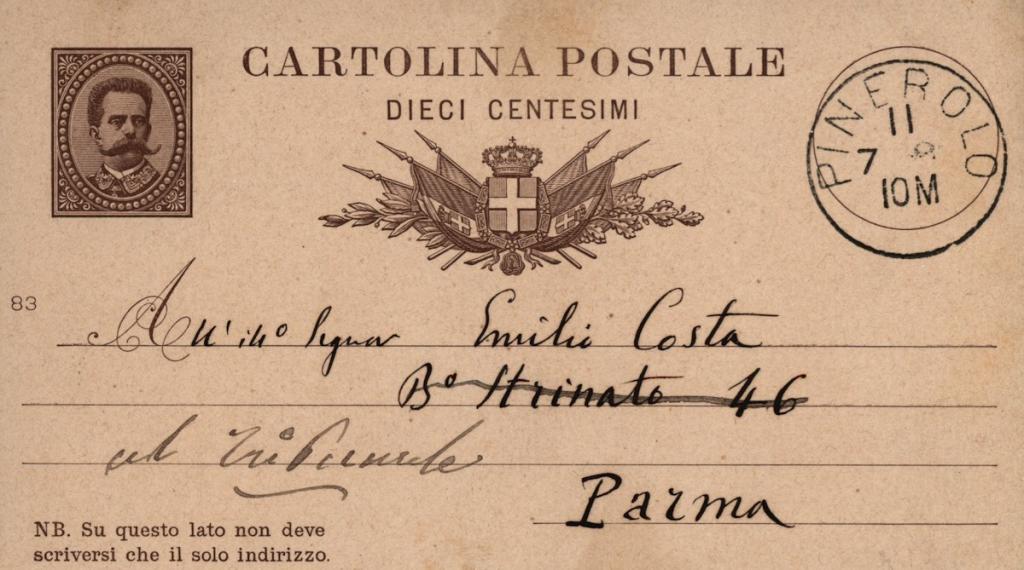 CARTOLINA POSTALE
DIECI CENTESIMI
PINEROLO
11
7
10M
83
All' ill.o Signor Emilio Costa
B.o Strinato 46
al Tribunale
Parma
NB. Su questo lato non deve
scriversi che il solo indirizzo.